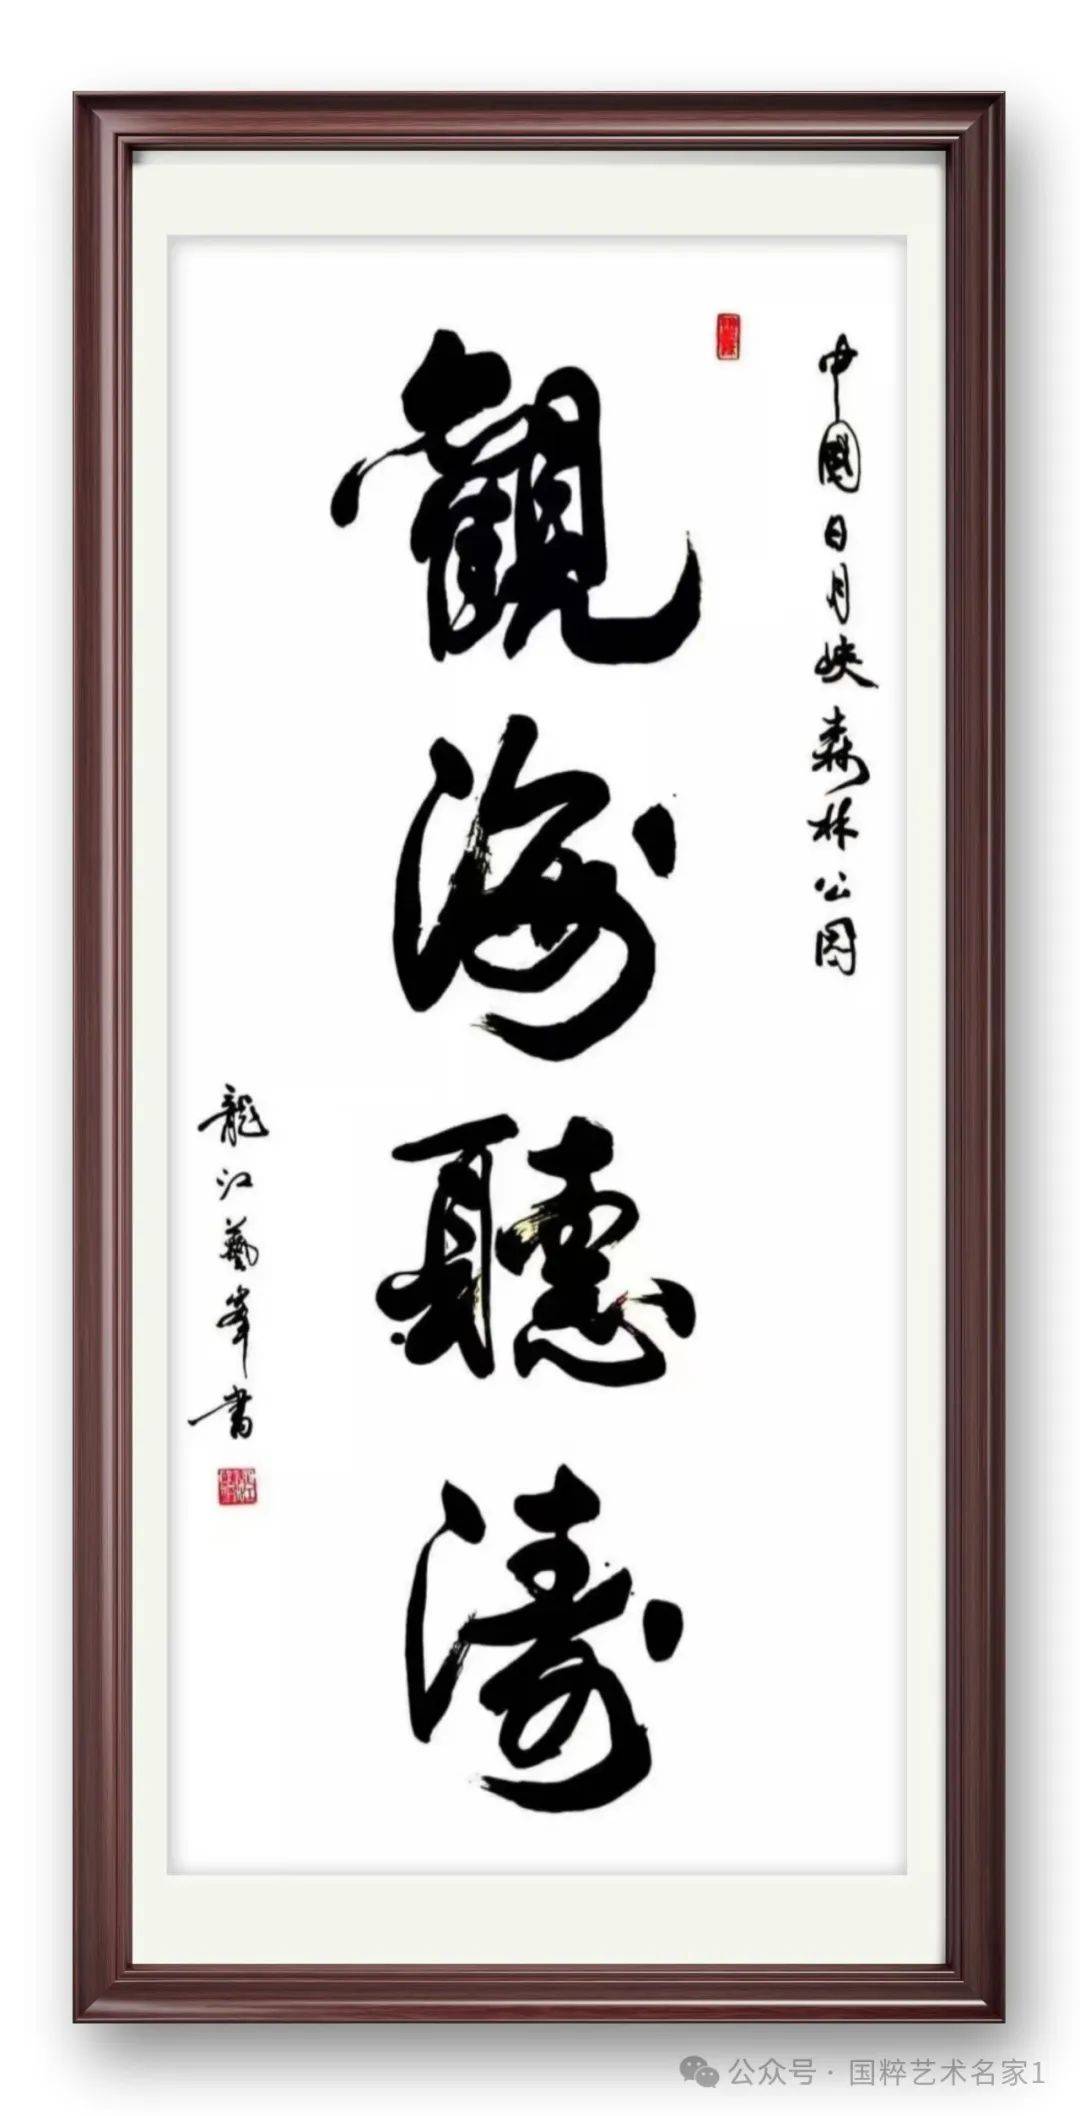 中國日月峽森林公园
觀海聽濤
龍江藝峯書
公众号 · 国粹艺术名家1